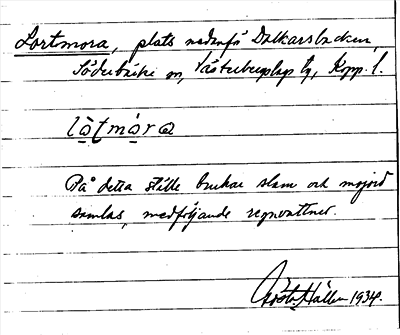 Lortmora, plats nedanför Dalkarsbacken,
Söderbärke sn, Västerbergslags tg, Kopp. l.
lo̠ţmo̠ra
På detta ställe brukar slam och mojord
samlas, medföljande regnvattnet.
Gösta Hållen 1934.